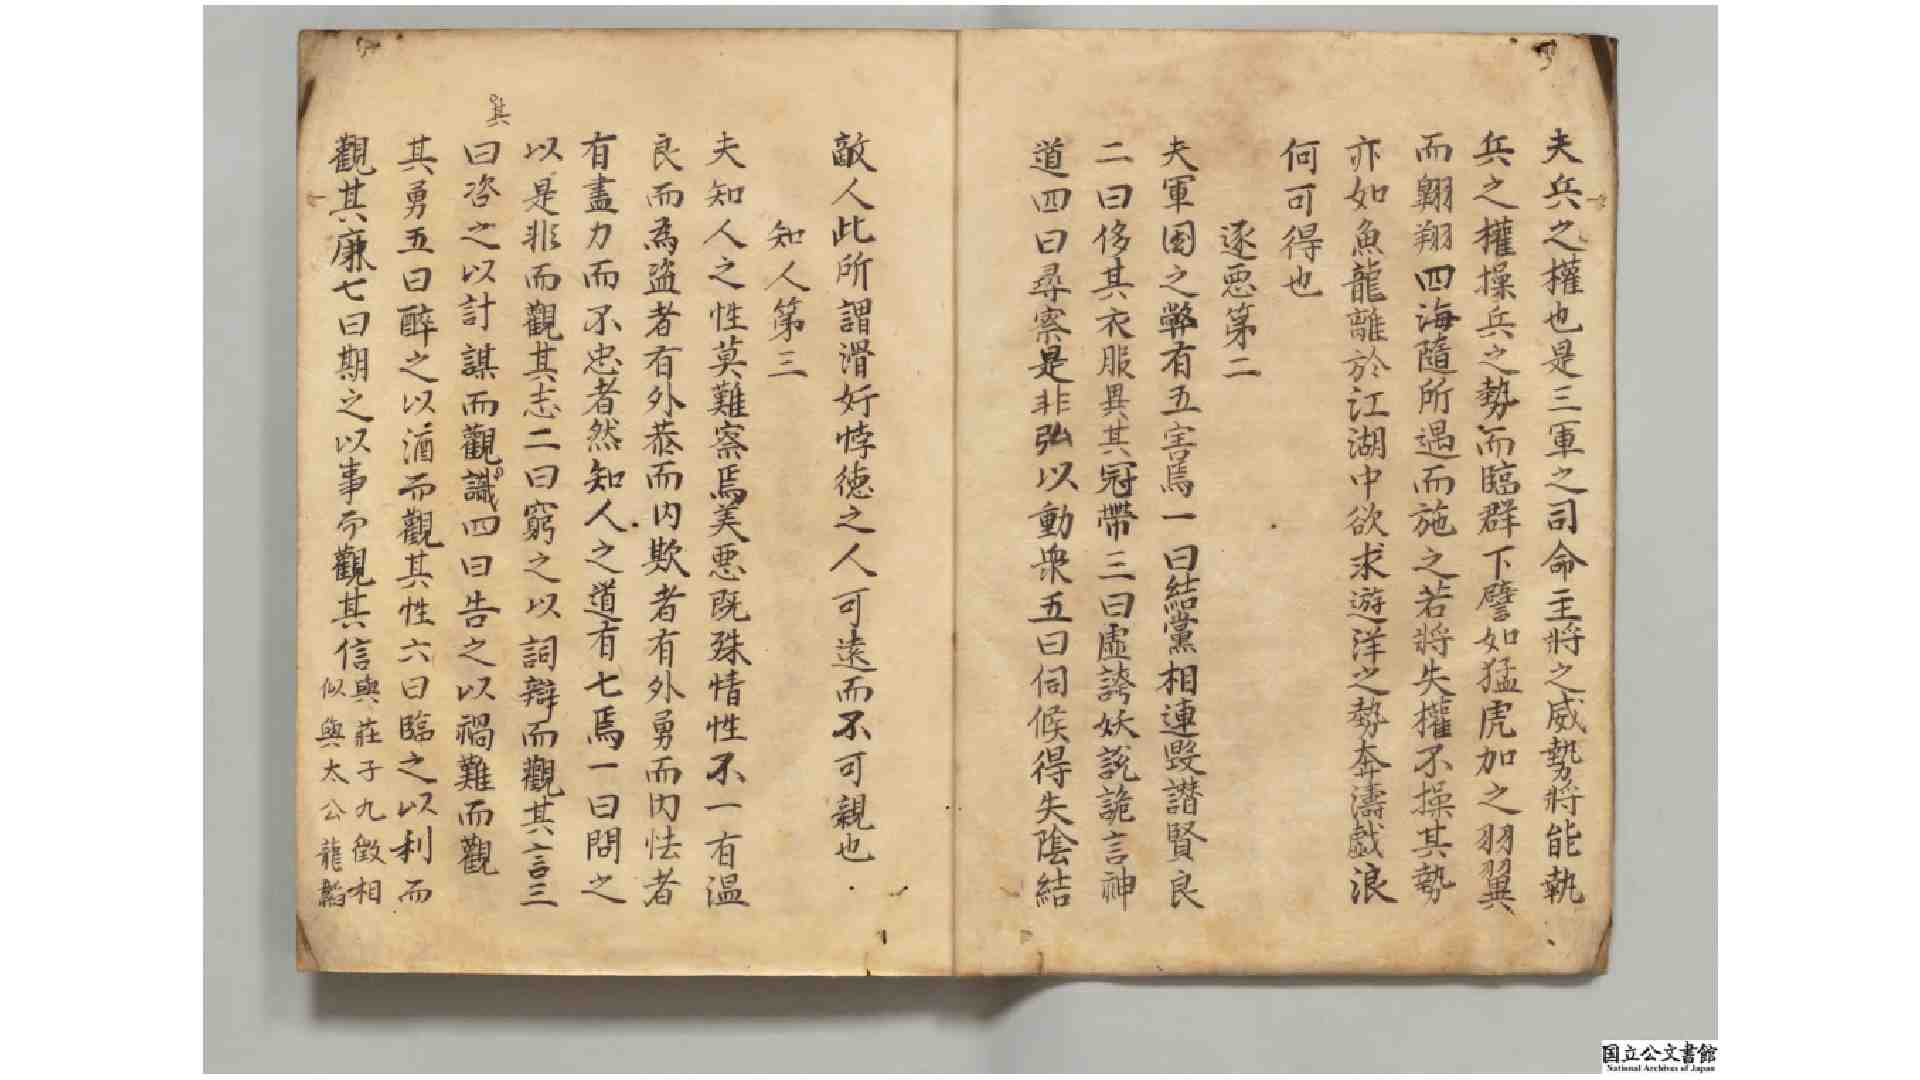 夫兵之權也是三軍之司命主將之威勢將能執
兵之權操兵之勢而臨群下譬如猛虎加之羽翼
而翱翔四海隨所遇而施之若將失權不操其勢
亦如魚龍離於江湖中欲求遊洋之勢奔濤戲浪
何可得也
逐惡第二
夫軍國之弊有五害焉一曰結黨相連毀譖賢良
二曰侈其衣服異其冠帶三曰虛誇妖說詭言神
道四曰尋察是非弘以動衆五曰伺候得失陰結
敵人此所謂滑奸悖德之人可遠而不可親也
知人第三
夫知人之性莫難察焉美惡既殊情性不一有温
良而為盗者有外恭而内欺者有外勇而内怯者
有盡力而不忠者然知人之道有七焉一曰問之
以是非而觀其志二曰窮之以詞辯而觀其言三
曰咨之以計謀而觀識四曰告之以禍難而觀
其
其勇五曰醉之以酒而觀其性六曰臨之以利而
觀其廉七曰期之以事而觀其信
與莊子九徵相
似與太公龍韜
国立公文書館
National Archives of Japan